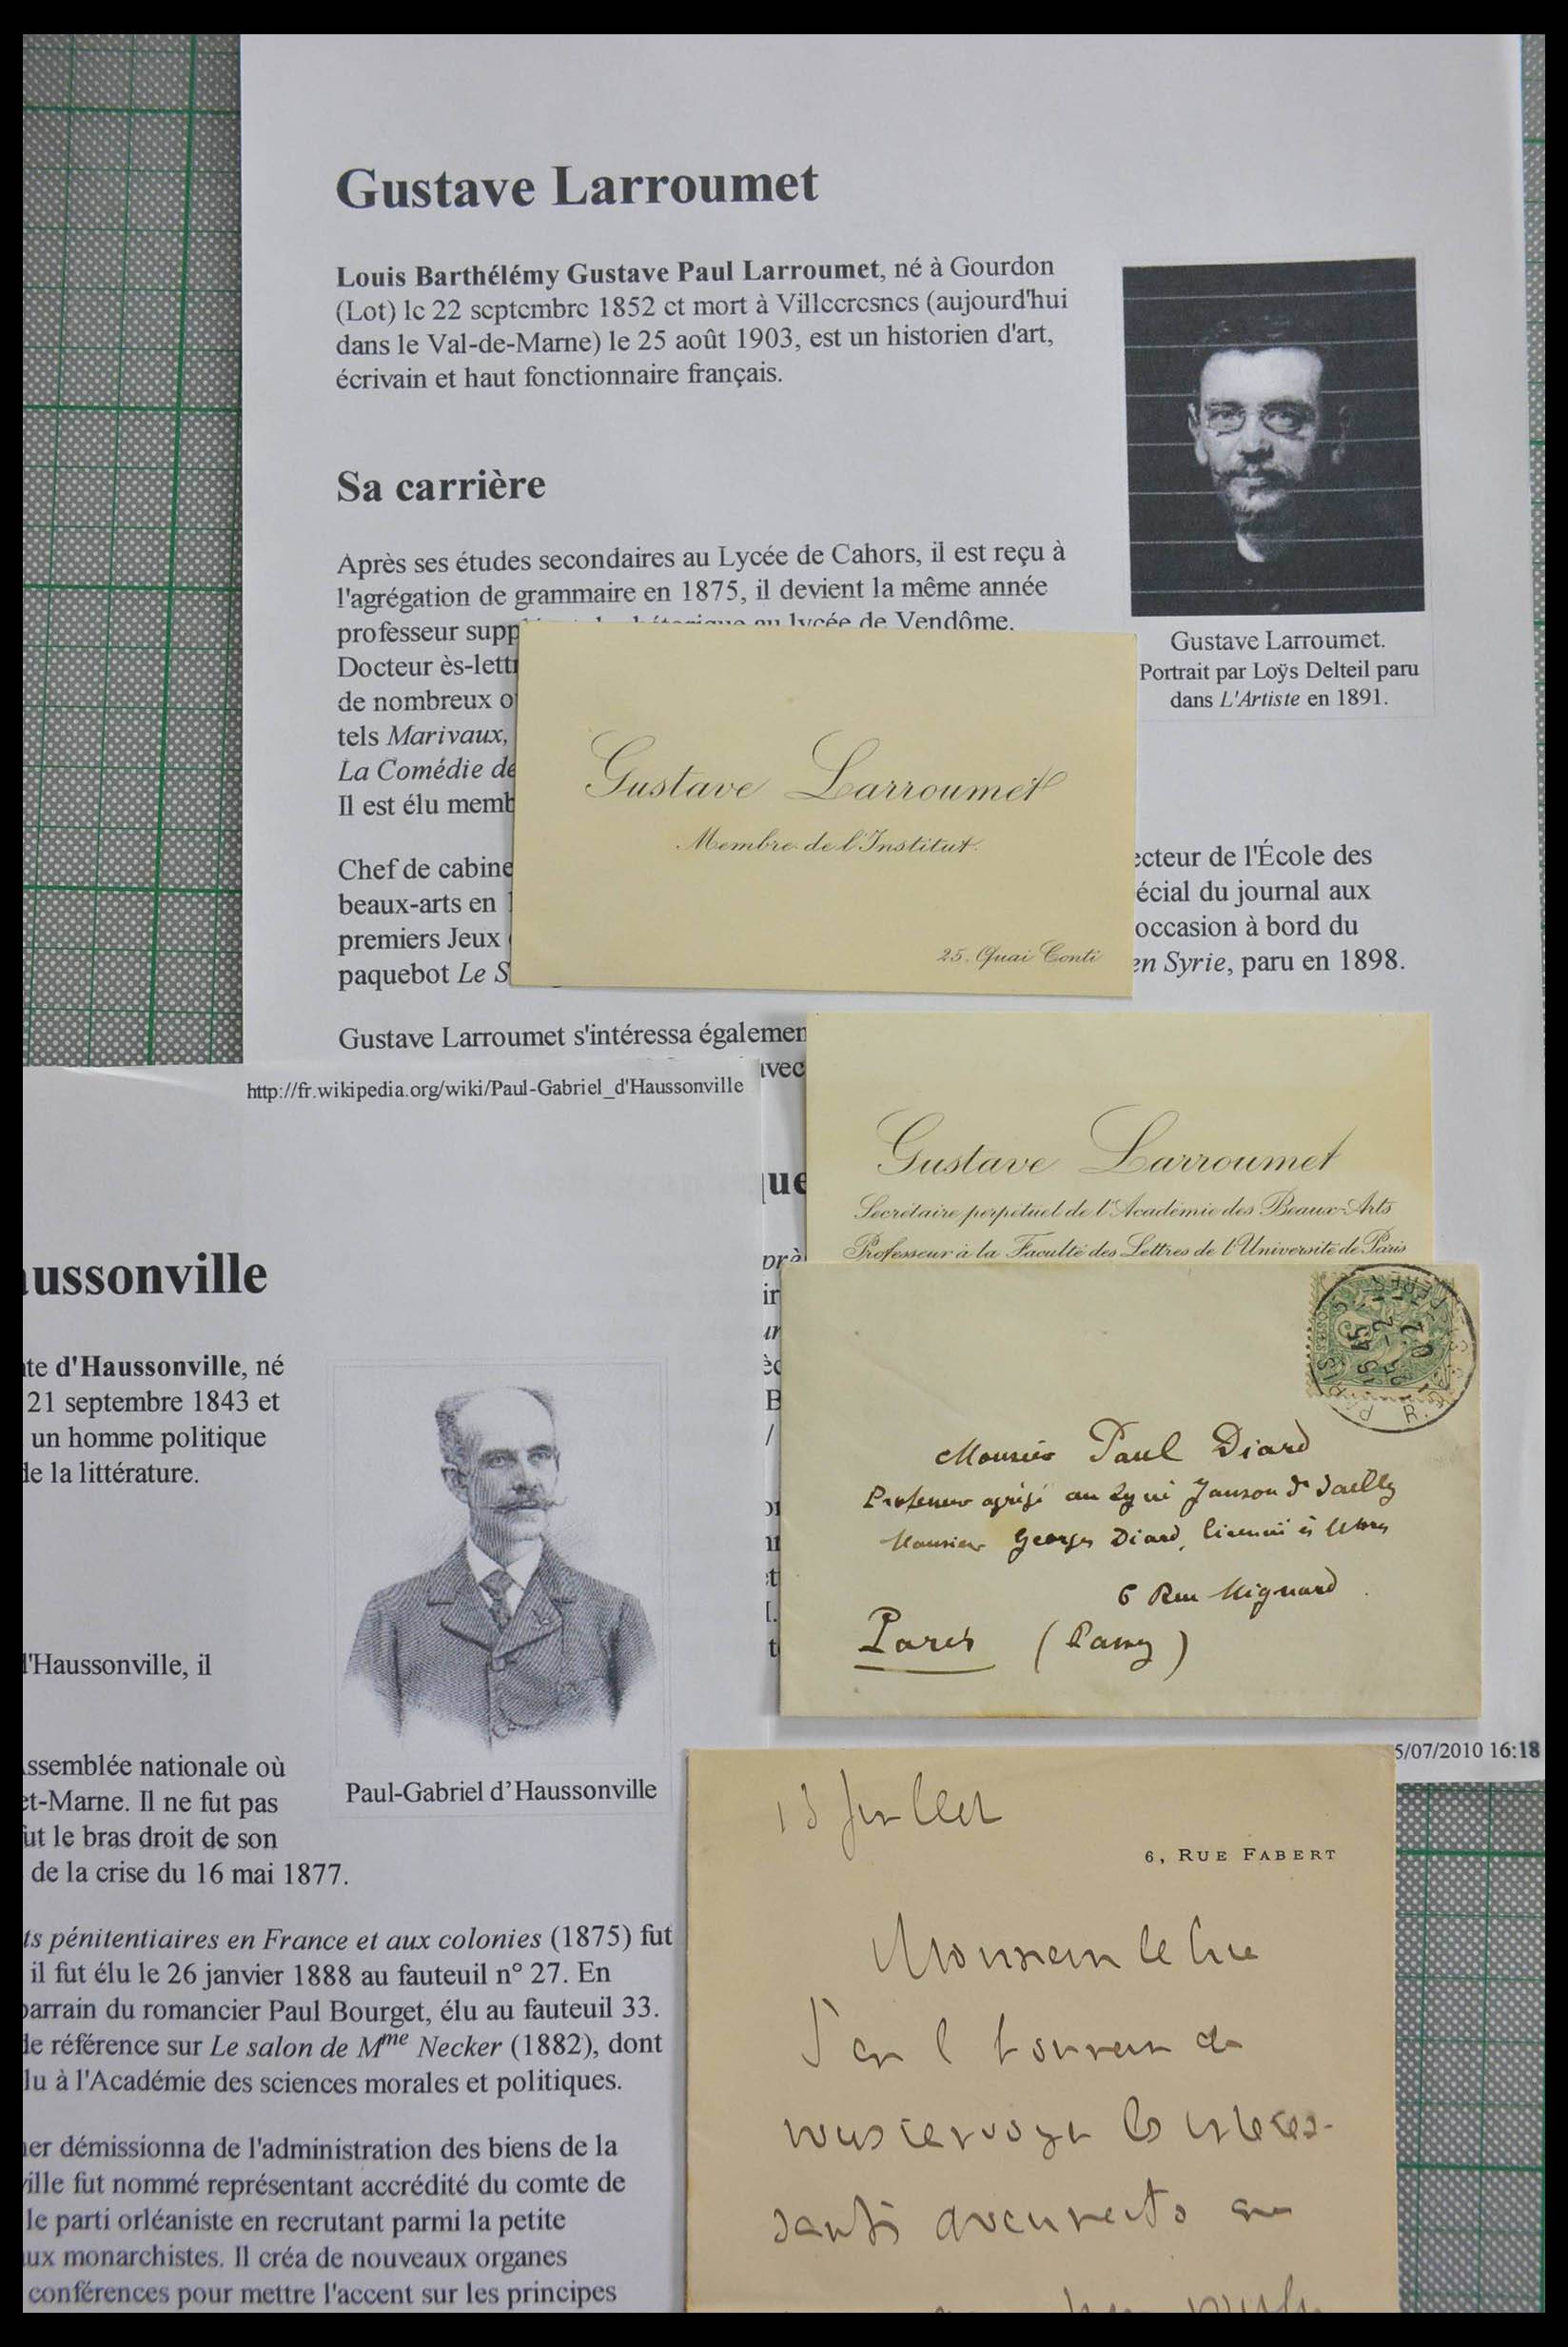 Gustave Larroumet
Louis Barthélémy Gustave Paul Larroumet, né à Gourdon
(Lot) le 22 septembre 1852 et mort à Villecresnes (aujourd'hui
dans le Val-de-Marne) le 25 août 1903, est un historien d'art,
écrivain et haut fonctionnaire français.
Gustave Larroumet.
Portrait par Loÿs Delteil paru
dans L'Artiste en 1891.
Sa carrière
Après ses études secondaires au Lycée de Cahors, il est reçu à
l'agrégation de grammaire en 1875, il devient la même année
professeur supp au lycée de Vendôme.
Docteur ès-lett
de nombreux o
tels Marivaux,
La Comédie de
Il est élu memb
Chef de cabine
beaux-arts en
premiers Jeux
paquebot Le S
ecteur de l'École des
écial du journal aux
occasion à bord du
en Syrie, paru en 1898.
Gustave Larroumet s'intéressa égalemen
avec
Gustave Larroumet
Membre de l'Institut.
25, Quai Conti
Gustave Larroumet
Secrétaire perpétuel de l'Académie des Beaux-Arts
Professeur à la Faculté des Lettres de l'Université de Paris
que
Monsieur Paul Diard
Professeur agrégé au Lycée Janson de Sailly
Monsieur Georges Diard, licencié ès lettres
6 Rue Mignard
Paris (Passy)
5/07/2010 16:18
http://fr.wikipedia.org/wiki/Paul-Gabriel_d'Haussonville
aussonville
te d'Haussonville, né
21 septembre 1843 et
un homme politique
de la littérature.
d'Haussonville, il
Assemblée nationale où
et-Marne. Il ne fut pas
fut le bras droit de son
de la crise du 16 mai 1877.
Paul-Gabriel d’Haussonville
ts pénitentiaires en France et aux colonies (1875) fut
il fut élu le 26 janvier 1888 au fauteuil n° 27. En
parrain du romancier Paul Bourget, élu au fauteuil 33.
de référence sur Le salon de Mme Necker (1882), dont
lu à l'Académie des sciences morales et politiques.
er démissionna de l'administration des biens de la
ville fut nommé représentant accrédité du comte de
le parti orléaniste en recrutant parmi la petite
ux monarchistes. Il créa de nouveaux organes
conférences pour mettre l'accent sur les principes
13 Juillet
6, RUE FABERT
Monsieur le
J'ai l'honneur de
vous renvoyer les intéres-
sants documents